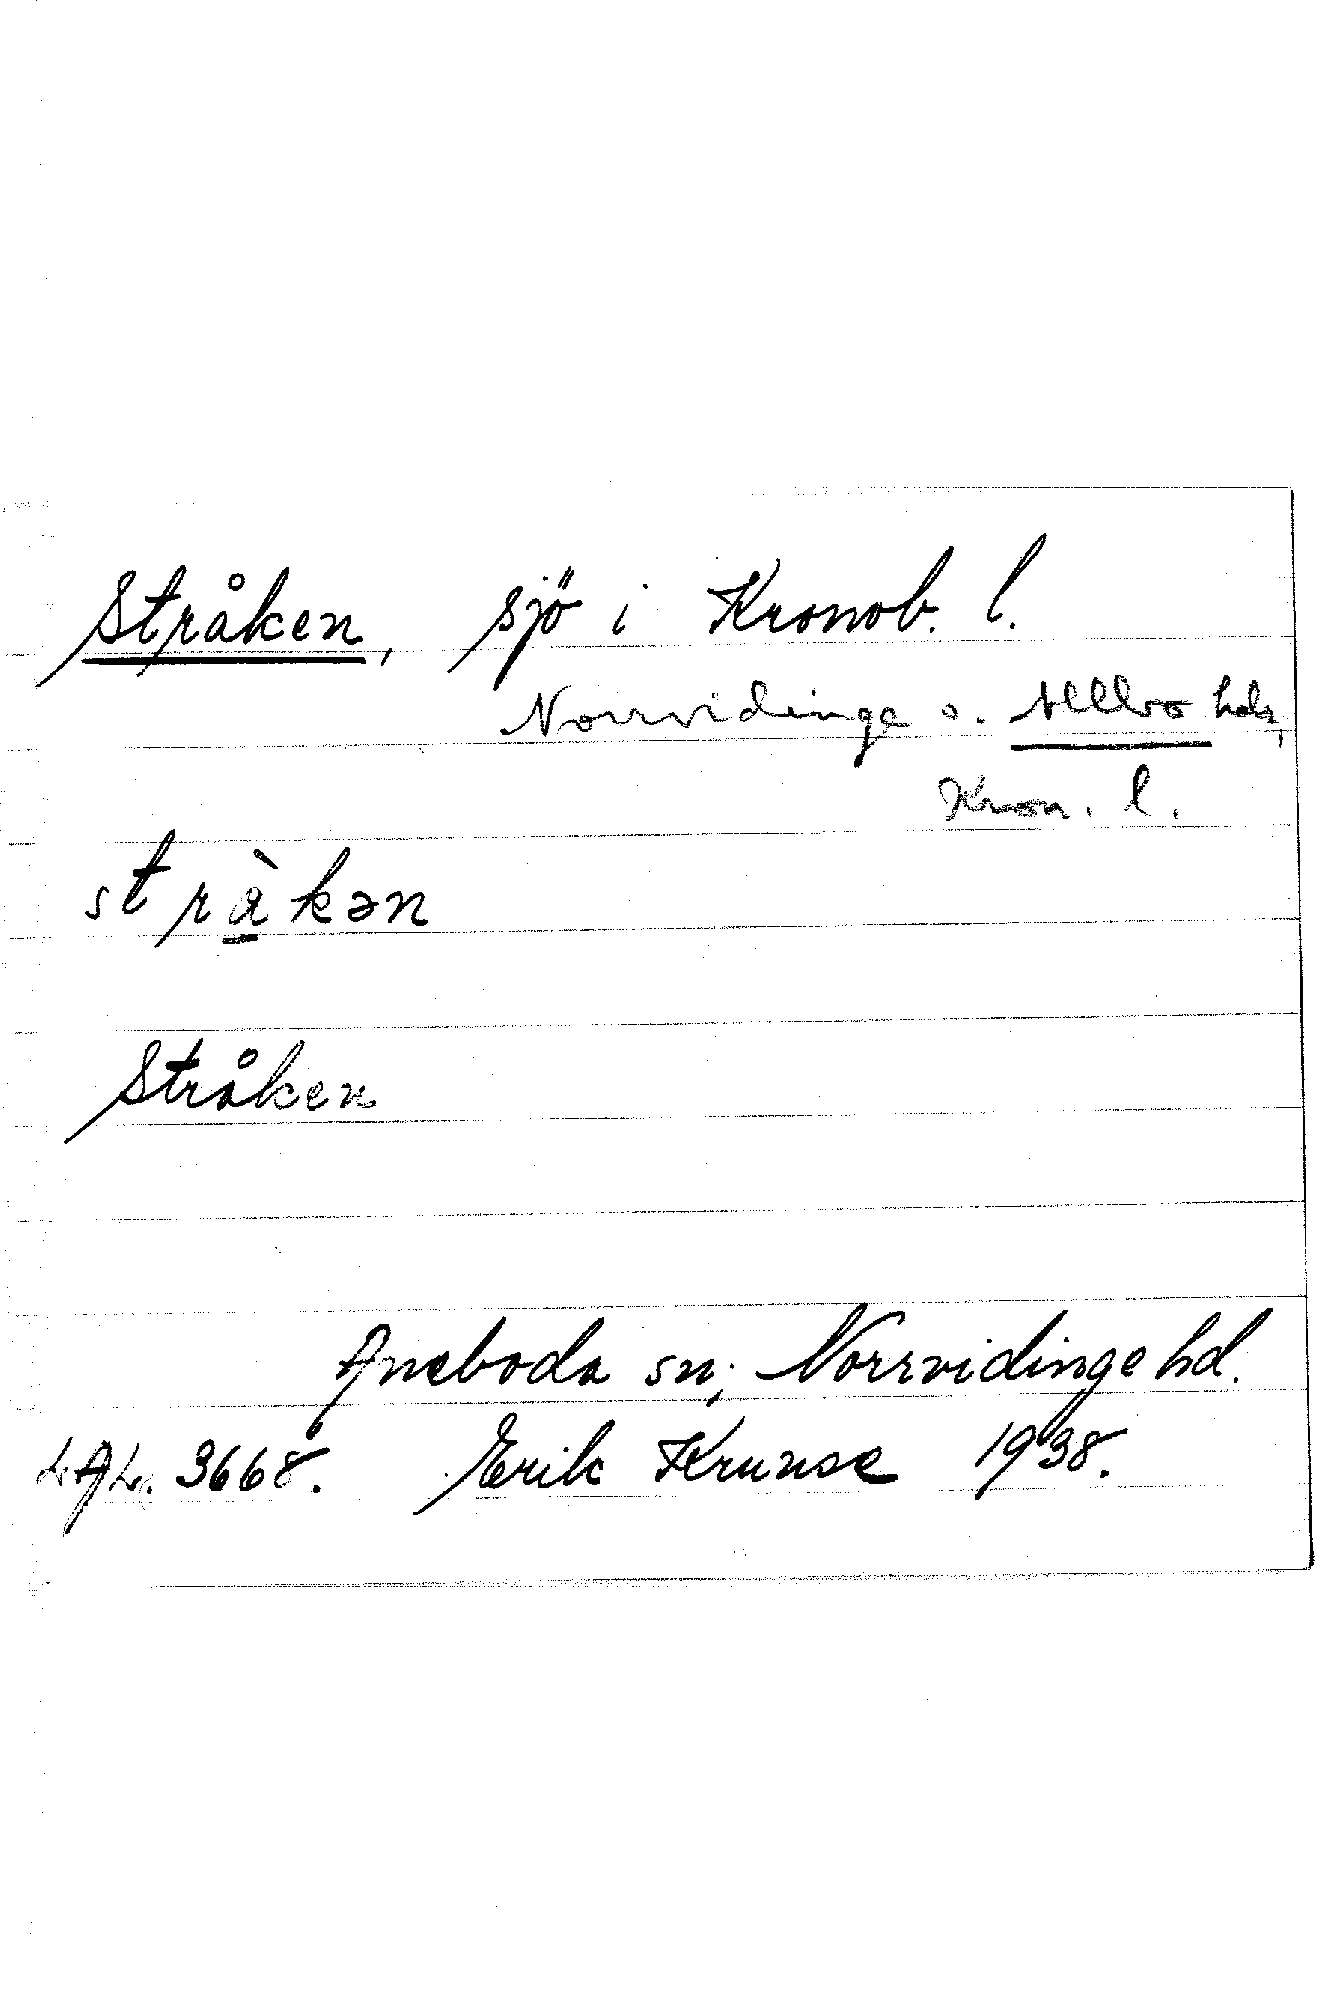 Stråken, sjö i Kronob. l.
Norrvidinge o. Allbo hdr,
Kron. l.
strà̱kən
Stråken
Aneboda sn; Norrvidinge hd.
L.A.L. 3668. Erik Krunse 1938.